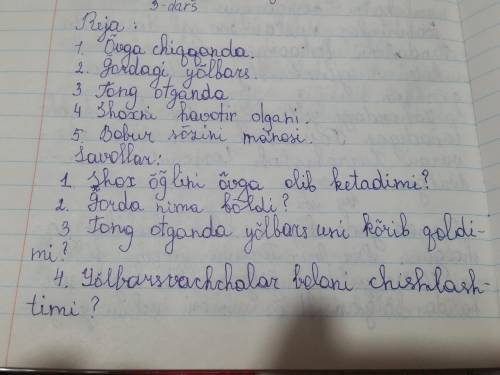 3-dars
Reja:
1. Õvga chiqqanda.
2. Ğordagi yõlbars.
3 Tong otganda
4 Shoxni havotir olgani.
5. Bobur sõzini mànosi.
Savollar:
1. Shox õğlini õvga olib ketadimi?
2. Ğorda nima bõldi?
3 Tong otganda yõlbars uni kõrib qoldi-
mi?
4. Yõlbarsvachchalar bolani chishlash-
timi?